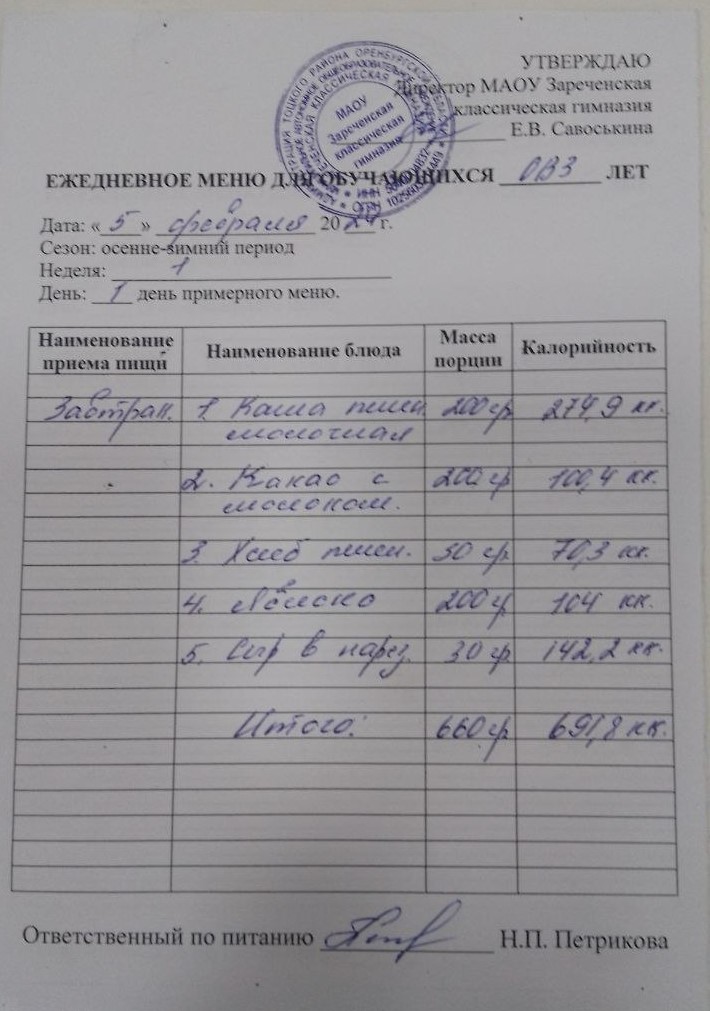 УТВЕРЖДАЮ
Директор МАОУ Зареченская
классическая гимназия
Е.В. Савоськина
МАОУ
Зареченская
классическая
гимназия
ЕЖЕДНЕВНОЕ МЕНЮ ДЛЯ ОБУЧАЮЩИХСЯ ОВЗ ЛЕТ
Дата: «5» февраля 2024 г.
Сезон: осенне-зимний период
Неделя: 1
День: 1 день примерного меню.
Наименование приема пищи Наименование блюда Масса порции Калорийность
Завтрак. 1. Каша пшен. 200 гр 274,9 кк.
молочная
2. Какао с 200 гр 100,4 кк.
молоком.
3. Хлеб пшен. 30 гр 70,3 кк.
4. Яблоко 200 гр 104 кк.
5. Сыр в нарез. 30 гр 142,2 кк.
Итого: 660 гр 691,8 кк.
Ответственный по питанию Н.П. Петрикова